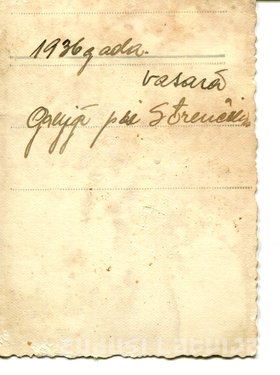 1936 gada.
vasarā
Gaujā pie Strenčiem